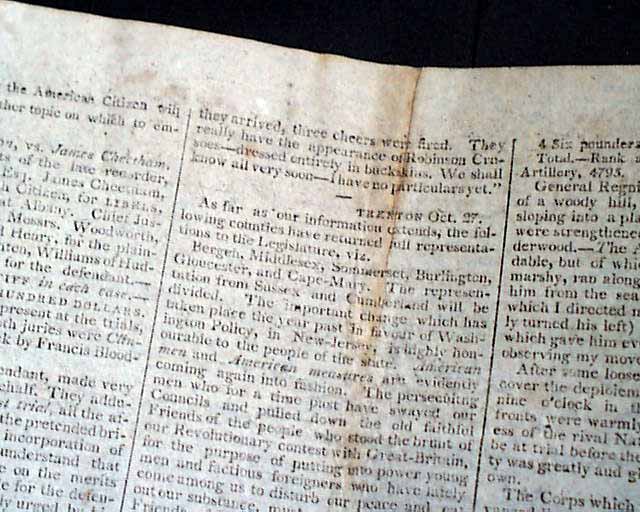 the American Citizen will
ther topic on which to em-
vs. James Cheetham,
ts of the late recorder,
Esq. James Cheetham,
h Citizen, for LIBELS,
at Albany. Chief Jus-
Messrs. Woodworth,
d Henry, for the plain-
nten, Williams of Hud-
for the defendant.—
in each case.—
HUNDRED DOLLARS.
present at the trials,
oth juries were Clin-
k by Francis Blood-
endant, made very
ehalf. They adde-
st trial, all the af-
the pretended bri-
incorporation of
understand that
e on the merits
e for the defen-
ly urged by his
they arrived, three cheers were fired. They
really have the appearance of Robinson Cru-
soes—dressed entirely in buckskins. We shall
know all very soon—I have no particulars yet."
TRENTON Oct. 27.
As far as our information extends, the fol-
lowing counties have returned full representa-
tions to the Legislature, viz.
Bergen, Middlesex, Sommerset, Burlington,
Gloucester, and Cape-May. The represen-
tation from Sussex and Cumberland will be
divided. The important change which has
taken place the year past in favour of Wash-
ington Policy, in New-Jersey, is highly hon-
ourable to the people of the state. American
men and American measures are evidently
coming again into fashion. The persecuting
men who for a time past have swayed our
Councils and pulled down the old faithful
Friends of the people who stood the brunt of
our Revolutionary contest with Great-Britain,
for the purpose of putting into power young
men and factious foreigners who have lately
come among us to disturb our peace and eat
out our substance, must
4 Six pounders
Total.—Rank a
Artillery, 4795.
General Regn
of a woody hill,
sloping into a pla
were strengthened
derwood.—The A
dable, but of whi
marshy, ran along
him from the sea
which I directed m
ly turned his left)
which gave him ev
observing my mov
After some loose
cover the deploiem
nine o'clock in
fronts were warmly
ess of the rival Na
be at trial before the
ty was greatly and g
own.
The Corps which